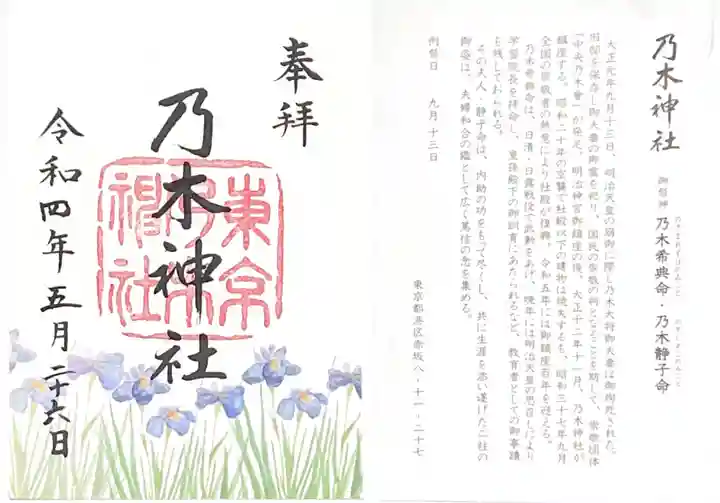 奉拝
乃木神社
東京乃木神社
令和四年五月二十六日
乃木神社
御祭神 乃木希典命・乃木静子命
のぎまれすけのみこと のぎしずこのみこと
大正元年九月十三日、明治天皇の崩御に際し乃木大将御夫妻は御殉死された。
旧邸を保存し御夫妻の御霊を祀り、国民の崇敬の的となることを期して、崇敬団体
「中央乃木會」が発足、明治神宮御鎮座の後、大正十二年十一月、乃木神社が
鎮座する。昭和二十年の空襲で社殿以下の建物は焼失するも、昭和三十七年九月
全国の崇敬者の熱意により社殿が復興。令和五年には御鎮座百年を迎える。
乃木希典命は、日清・日露戦役で武勲をあげ、晩年には明治天皇の思召しにより
学習院長を拝命し、皇孫殿下の御訓育にあたられるなど、教育者としての御事蹟
も残しておられる。
その夫人、静子命は、内助の功をもって尽くし、共に生涯を添い遂げた二柱の
御姿は、夫婦和合の鑑として広く篤信の念を集める。
例祭日 九月十三日
東京都港区赤坂八・十一・二十七